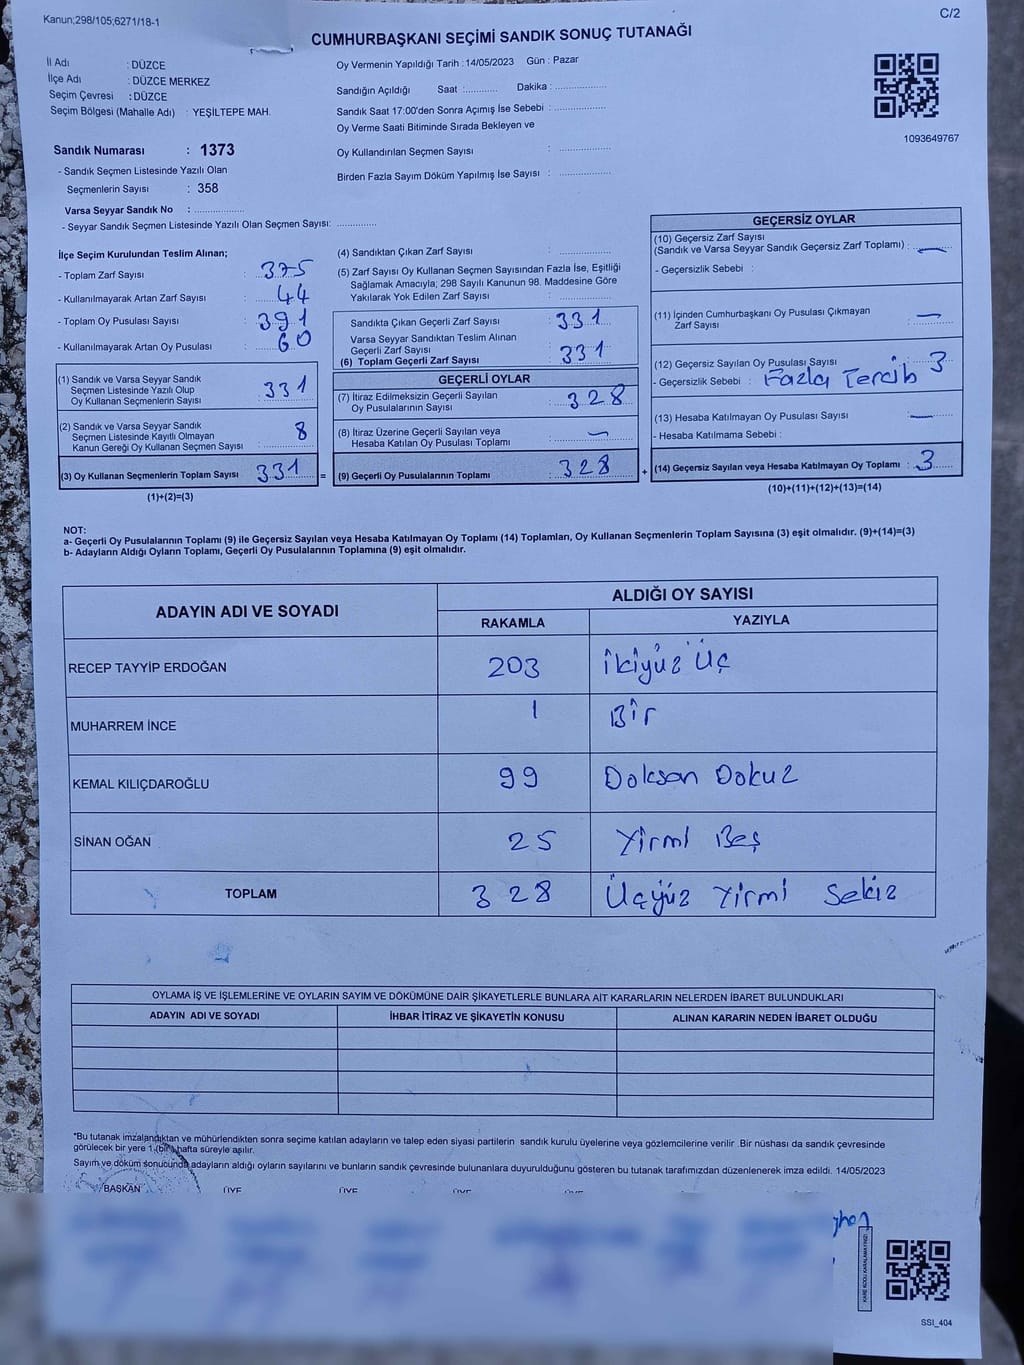 Kanun;298/105;6271/18-1
C/2
CUMHURBAŞKANI SEÇİMİ SANDIK SONUÇ TUTANAĞI
İl Adı : DÜZCE
İlçe Adı : DÜZCE MERKEZ
Seçim Çevresi : DÜZCE
Seçim Bölgesi (Mahalle Adı) : YEŞİLTEPE MAH.
Oy Vermenin Yapıldığı Tarih : 14/05/2023 Gün : Pazar
Sandığın Açıldığı Saat :........... Dakika :.................
Sandık Saat 17:00'den Sonra Açımış İse Sebebi : .................
Oy Verme Saati Bitiminde Sırada Bekleyen ve
Oy Kullandırılan Seçmen Sayısı : .................
Birden Fazla Sayım Döküm Yapılmış İse Sayısı : .................
1093649767
Sandık Numarası : 1373
- Sandık Seçmen Listesinde Yazılı Olan
Seçmenlerin Sayısı : 358
Varsa Seyyar Sandık No : .................
- Seyyar Sandık Seçmen Listesinde Yazılı Olan Seçmen Sayısı: .............
İlçe Seçim Kurulundan Teslim Alınan;
- Toplam Zarf Sayısı : 375
- Kullanılmayarak Artan Zarf Sayısı : 44
- Toplam Oy Pusulası Sayısı : 391
- Kullanılmayarak Artan Oy Pusulası : 60
(1) Sandık ve Varsa Seyyar Sandık
Seçmen Listesinde Yazılı Olup
Oy Kullanan Seçmenlerin Sayısı : 331
(2) Sandık ve Varsa Seyyar Sandık
Seçmen Listesinde Kayıtlı Olmayan
Kanun Gereği Oy Kullanan Seçmen Sayısı : 8
(3) Oy Kullanan Seçmenlerin Toplam Sayısı 331 =
(1)+(2)=(3)
(4) Sandıktan Çıkan Zarf Sayısı : .................
(5) Zarf Sayısı Oy Kullanan Seçmen Sayısından Fazla İse, Eşitliği
Sağlamak Amacıyla; 298 Sayılı Kanunun 98. Maddesine Göre
Yakılarak Yok Edilen Zarf Sayısı : .................
Sandıkta Çıkan Geçerli Zarf Sayısı : 331
Varsa Seyyar Sandıktan Teslim Alınan
Geçerli Zarf Sayısı :
(6) Toplam Geçerli Zarf Sayısı : 331
GEÇERLİ OYLAR
(7) İtiraz Edilmeksizin Geçerli Sayılan
Oy Pusulalarının Sayısı : 328
(8) İtiraz Üzerine Geçerli Sayılan veya
Hesaba Katılan Oy Pusulası Toplamı : —
(9) Geçerli Oy Pusulalarının Toplamı : 328 +
GEÇERSİZ OYLAR
(10) Geçersiz Zarf Sayısı
(Sandık ve Varsa Seyyar Sandık Geçersiz Zarf Toplamı) : —
- Geçersizlik Sebebi :
(11) İçinden Cumhurbaşkanı Oy Pusulası Çıkmayan
Zarf Sayısı : —
(12) Geçersiz Sayılan Oy Pusulası Sayısı : 3
- Geçersizlik Sebebi : Fazla Tercib
(13) Hesaba Katılmayan Oy Pusulası Sayısı : —
- Hesaba Katılmama Sebebi :
(14) Geçersiz Sayılan veya Hesaba Katılmayan Oy Toplamı : 3
(10)+(11)+(12)+(13)=(14)
NOT:
a- Geçerli Oy Pusulalarının Toplamı (9) ile Geçersiz Sayılan veya Hesaba Katılmayan Oy Toplamı (14) Toplamları, Oy Kullanan Seçmenlerin Toplam Sayısına (3) eşit olmalıdır. (9)+(14)=(3)
b- Adayların Aldığı Oyların Toplamı, Geçerli Oy Pusulalarının Toplamına (9) eşit olmalıdır.
ADAYIN ADI VE SOYADI
ALDIĞI OY SAYISI
RAKAMLA YAZIYLA
RECEP TAYYİP ERDOĞAN 203 İkiyüz Üç
MUHARREM İNCE 1 Bir
KEMAL KILIÇDAROĞLU 99 Doksan Dokuz
SİNAN OĞAN 25 Yirmi Beş
TOPLAM 328 Üçyüz Yirmi Sekiz
OYLAMA İŞ VE İŞLEMLERİNE VE OYLARIN SAYIM VE DÖKÜMÜNE DAİR ŞİKAYETLERLE BUNLARA AİT KARARLARIN NELERDEN İBARET BULUNDUKLARI
ADAYIN ADI VE SOYADI İHBAR İTİRAZ VE ŞİKAYETİN KONUSU ALINAN KARARIN NEDEN İBARET OLDUĞU
*Bu tutanak imzalandıktan ve mühürlendikten sonra seçime katılan adayların ve talep eden siyasi partilerin sandık kurulu üyelerine veya gözlemcilerine verilir .Bir nüshası da sandık çevresinde
görülecek bir yere 1 (bir) hafta süreyle asılır.
Sayım ve döküm sonucunda adayların aldığı oyların sayılarını ve bunların sandık çevresinde bulunanlara duyurulduğunu gösteren bu tutanak tarafımızdan düzenlenerek imza edildi. 14/05/2023
BAŞKAN ÜYE ÜYE ÜYE ÜYE
KARE KODU KARALAMAYINIZ!
SSI_404